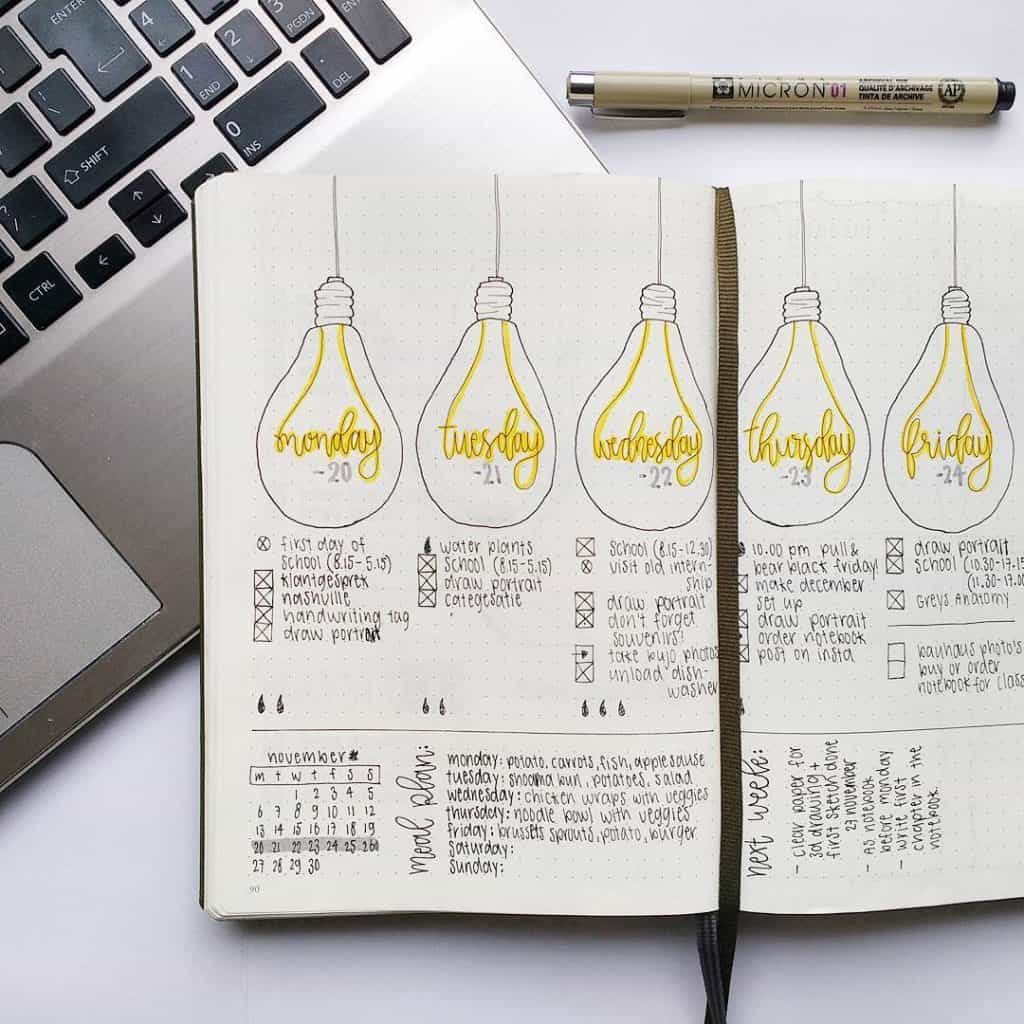 ENTER
4
3
PGDN
ENT
1
END
2
DEL
SHIFT
0
INS
CTRL
MICRON 01
QUALITÉ D'ARCHIVAGE
TINTA DE ARCHIVE
AP
monday
-20
first day of
school (8.15-5.15)
klantgesprek
nashville
handwriting tag
draw portrait
tuesday
-21
water plants
school (8.15-5.15)
draw portrait
categesatie
wednesday
-22
school (8.15-12.30)
visit old intern-
ship
draw portrait
don't forget
souvenirs?
take bujo photos
unload dish-
washer
thursday
-23
10.00 pm pull &
bear black friday!
make december
set up
draw portrait
order notebook
post on insta
friday
-24
draw portrait
school (10.30-17.15
(11.30-17.00
Greys Anatomy
bauhaus photo's
buy or order
notebook for class
november
m t w t f s s
1 2 3 4 5
6 7 8 9 10 11 12
13 14 15 16 17 18 19
20 21 22 23 24 25 26
27 28 29 30
90
meal plan:
monday: potato, carrots, fish, applesauce
tuesday: shoarma bun, potatoes, salad
wednesday: chicken wraps with veggies
thursday: noodle bowl with veggies
friday: brussels sprouts, potato, burger
saturday:
sunday:
next week:
- clear paper for
3d drawing +
first sketch done
27 november
- AS notebook
before monday
- write first
chapter in the
notebook